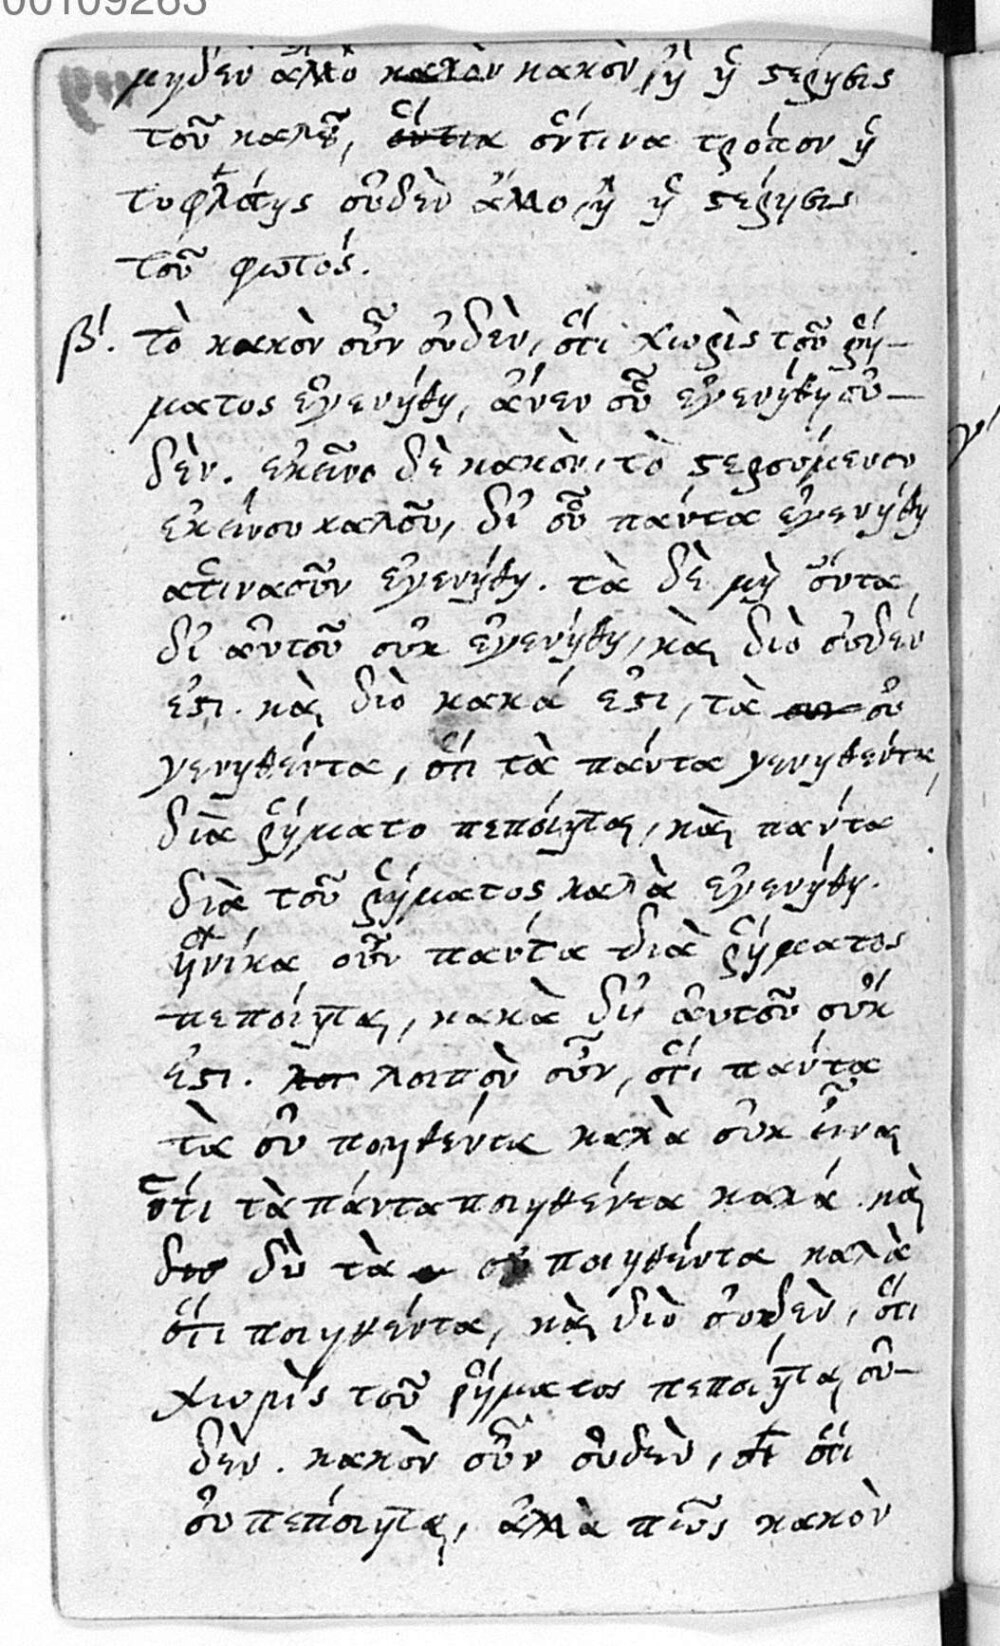 00109263
μηδὲν ἄλλο καλὸν κακὸν, ἢ ἡ στέρησις
τοῦ καλοῦ, ὅντινα τρόπον ἡ
τυφλότης οὐδὲν ἄλλο, ἢ ἡ στέρησις
τοῦ φωτός.
β'. τὸ κακὸν οὖν οὐδὲν, ὅτι χωρὶς τοῦ ῥή-
ματος ἐγενήθη, ἄνευ οὗ ἐγενήθη οὐ-
δὲν. ἐκεῖνο δὲ κακὸν, τὸ στερούμενον
ἐκείνου καλοῦ, δι' οὗ πάντα ἐγενήθη
ἅτιναοῦν ἐγενήθη. τὰ δὲ μὴ ὄντα,
δι' αὐτοῦ οὐκ ἐγενήθη, καὶ διὸ οὐδέν
ἐστι. καὶ διὸ κακά ἐστι, τὰ οὐ
γενηθέντα, ὅτι τὰ πάντα γενηθέντα,
διὰ ῥήματο πεποίηται, καὶ πάντα
διὰ τοῦ ῥήματος καλὰ ἐγενήθη.
ἡνίκα οὖν πάντα διὰ ῥήματος
πεποίηται, κακὰ δι' αὐτοῦ οὐκ
ἐστι. λοιπὸν οὖν, ὅτι πάντα
τὰ οὐ ποιηθέντα καλὰ οὐκ εἶναι
ὅτι τὰ πάντα ποιηθέντα καλά. καὶ
δὺ τὰ οὐ ποιηθέντα καλὰ
ὅτι ποιηθέντα, καὶ διὸ οὐδὲν, ὅτι
χωρὶς τοῦ ῥήματος πεποίηται οὐ-
δὲν. κακὸν οὖν οὐδὲν, ὅτι
οὐ πεποίηται, ἀλλὰ πῶς κακὸν
γ'